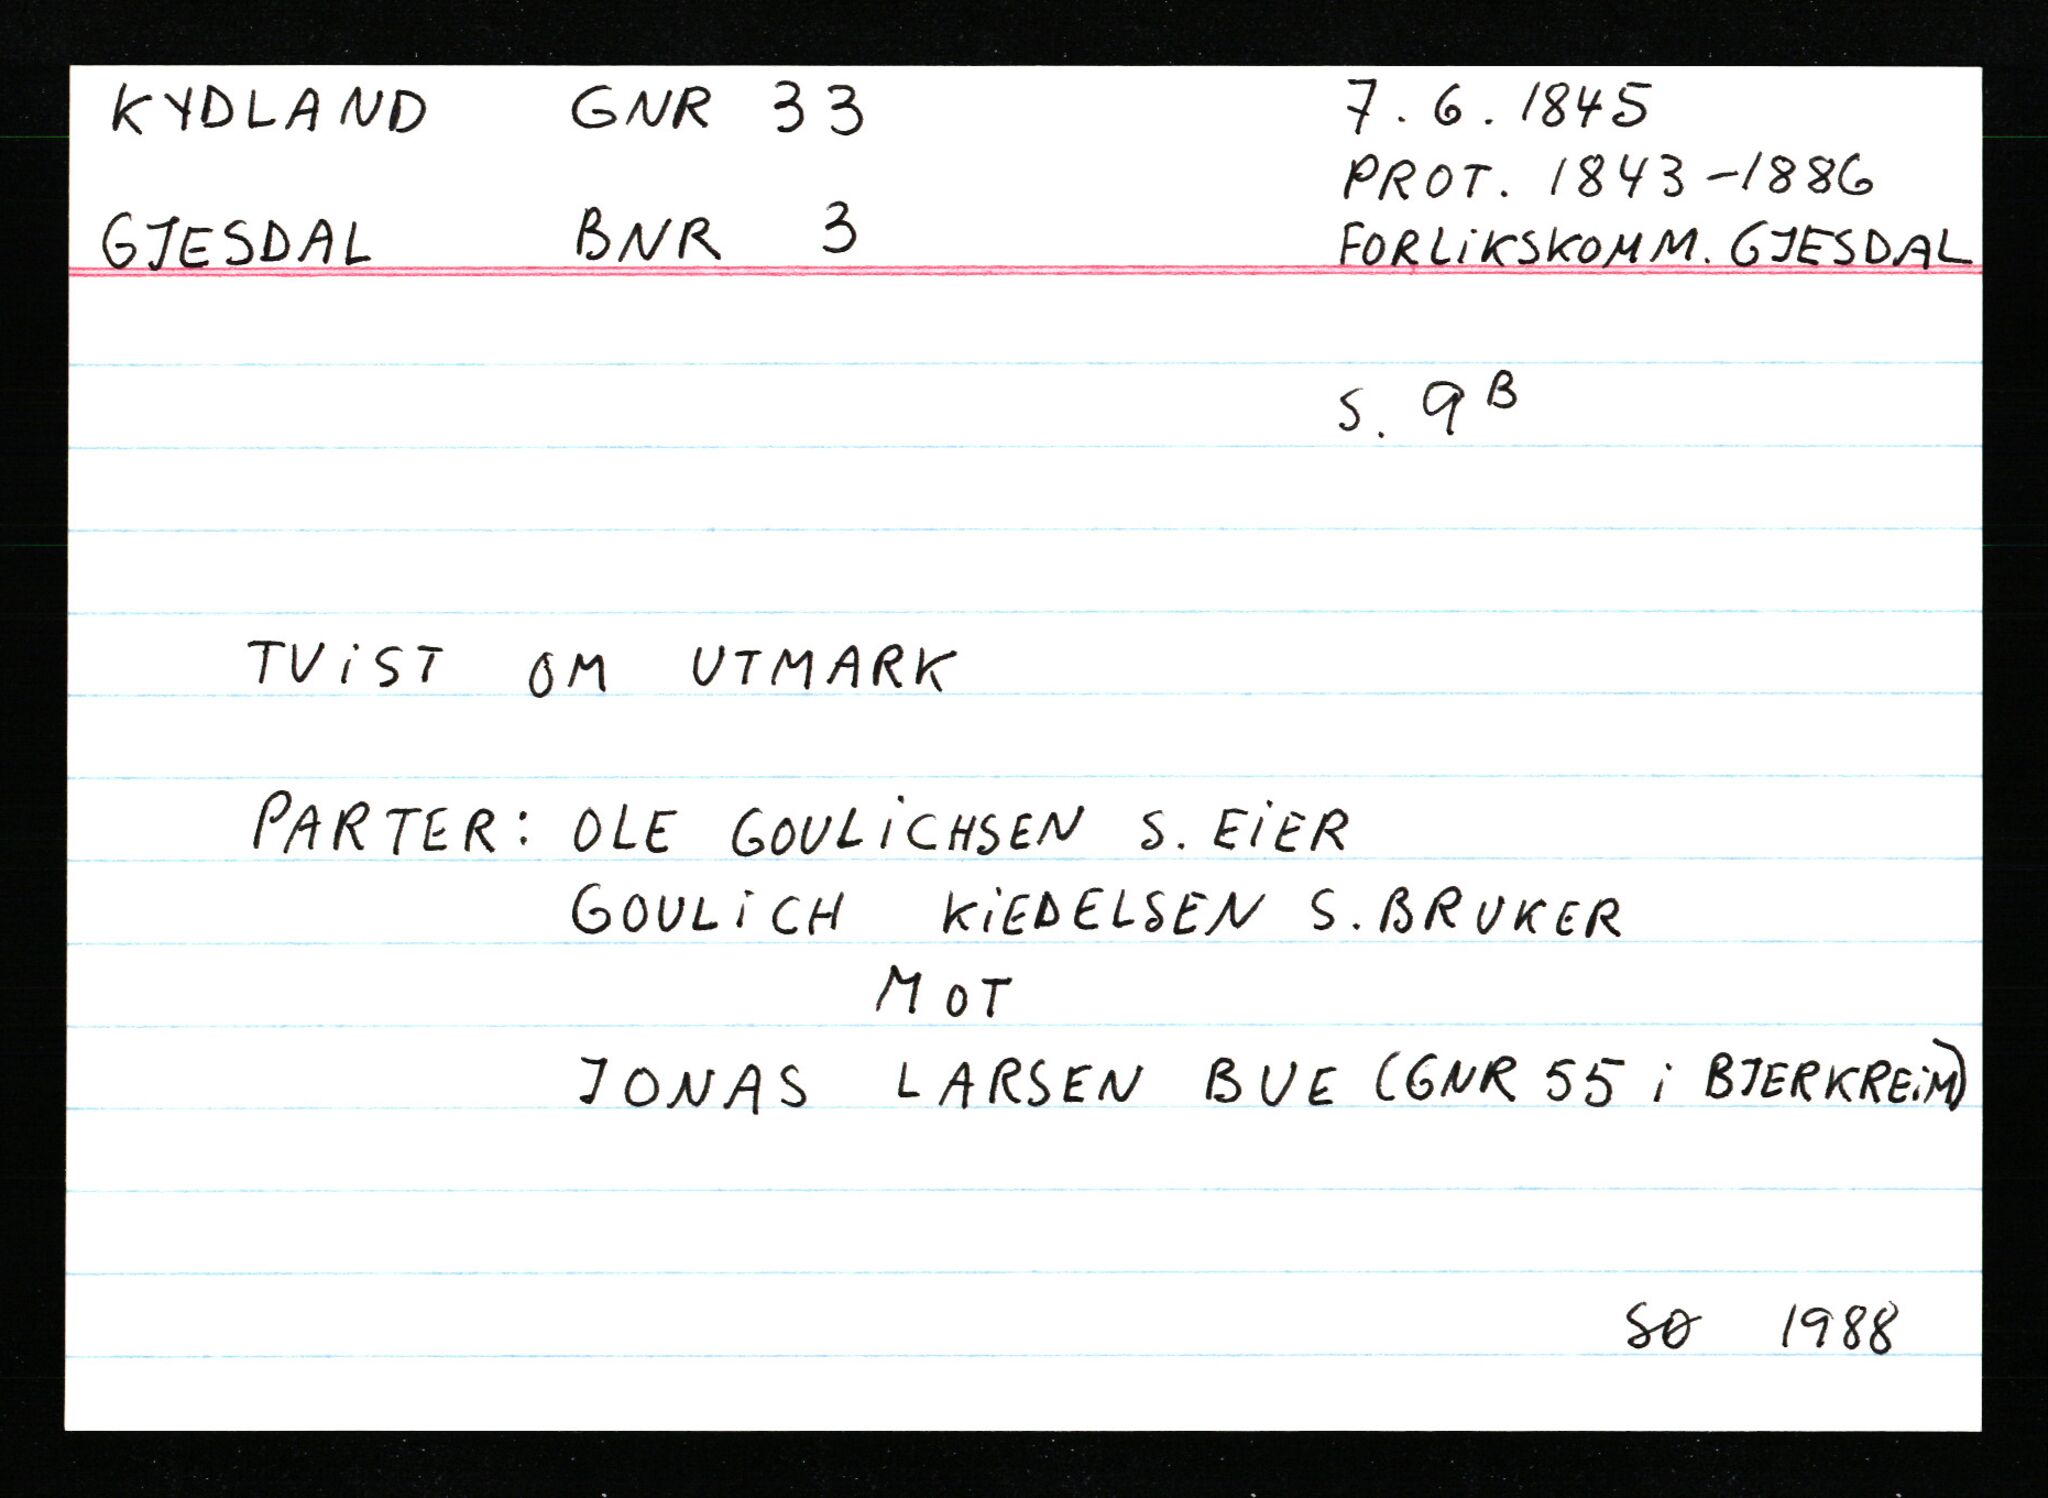 KYDLAND GNR 33 7.6.1845
PROT. 1843-1886
GJESDAL BNR 3 FORLiKSKOMM. GJESDAL
S. 9B
TViST OM UTMARK
PARTER: OLE GOULiCHSEN S. EiER
GOULiCH KiEDELSEN S. BRUKER
MOT
JONAS LARSEN BUE (GNR 55 i BJERKREiM)
SØ 1988